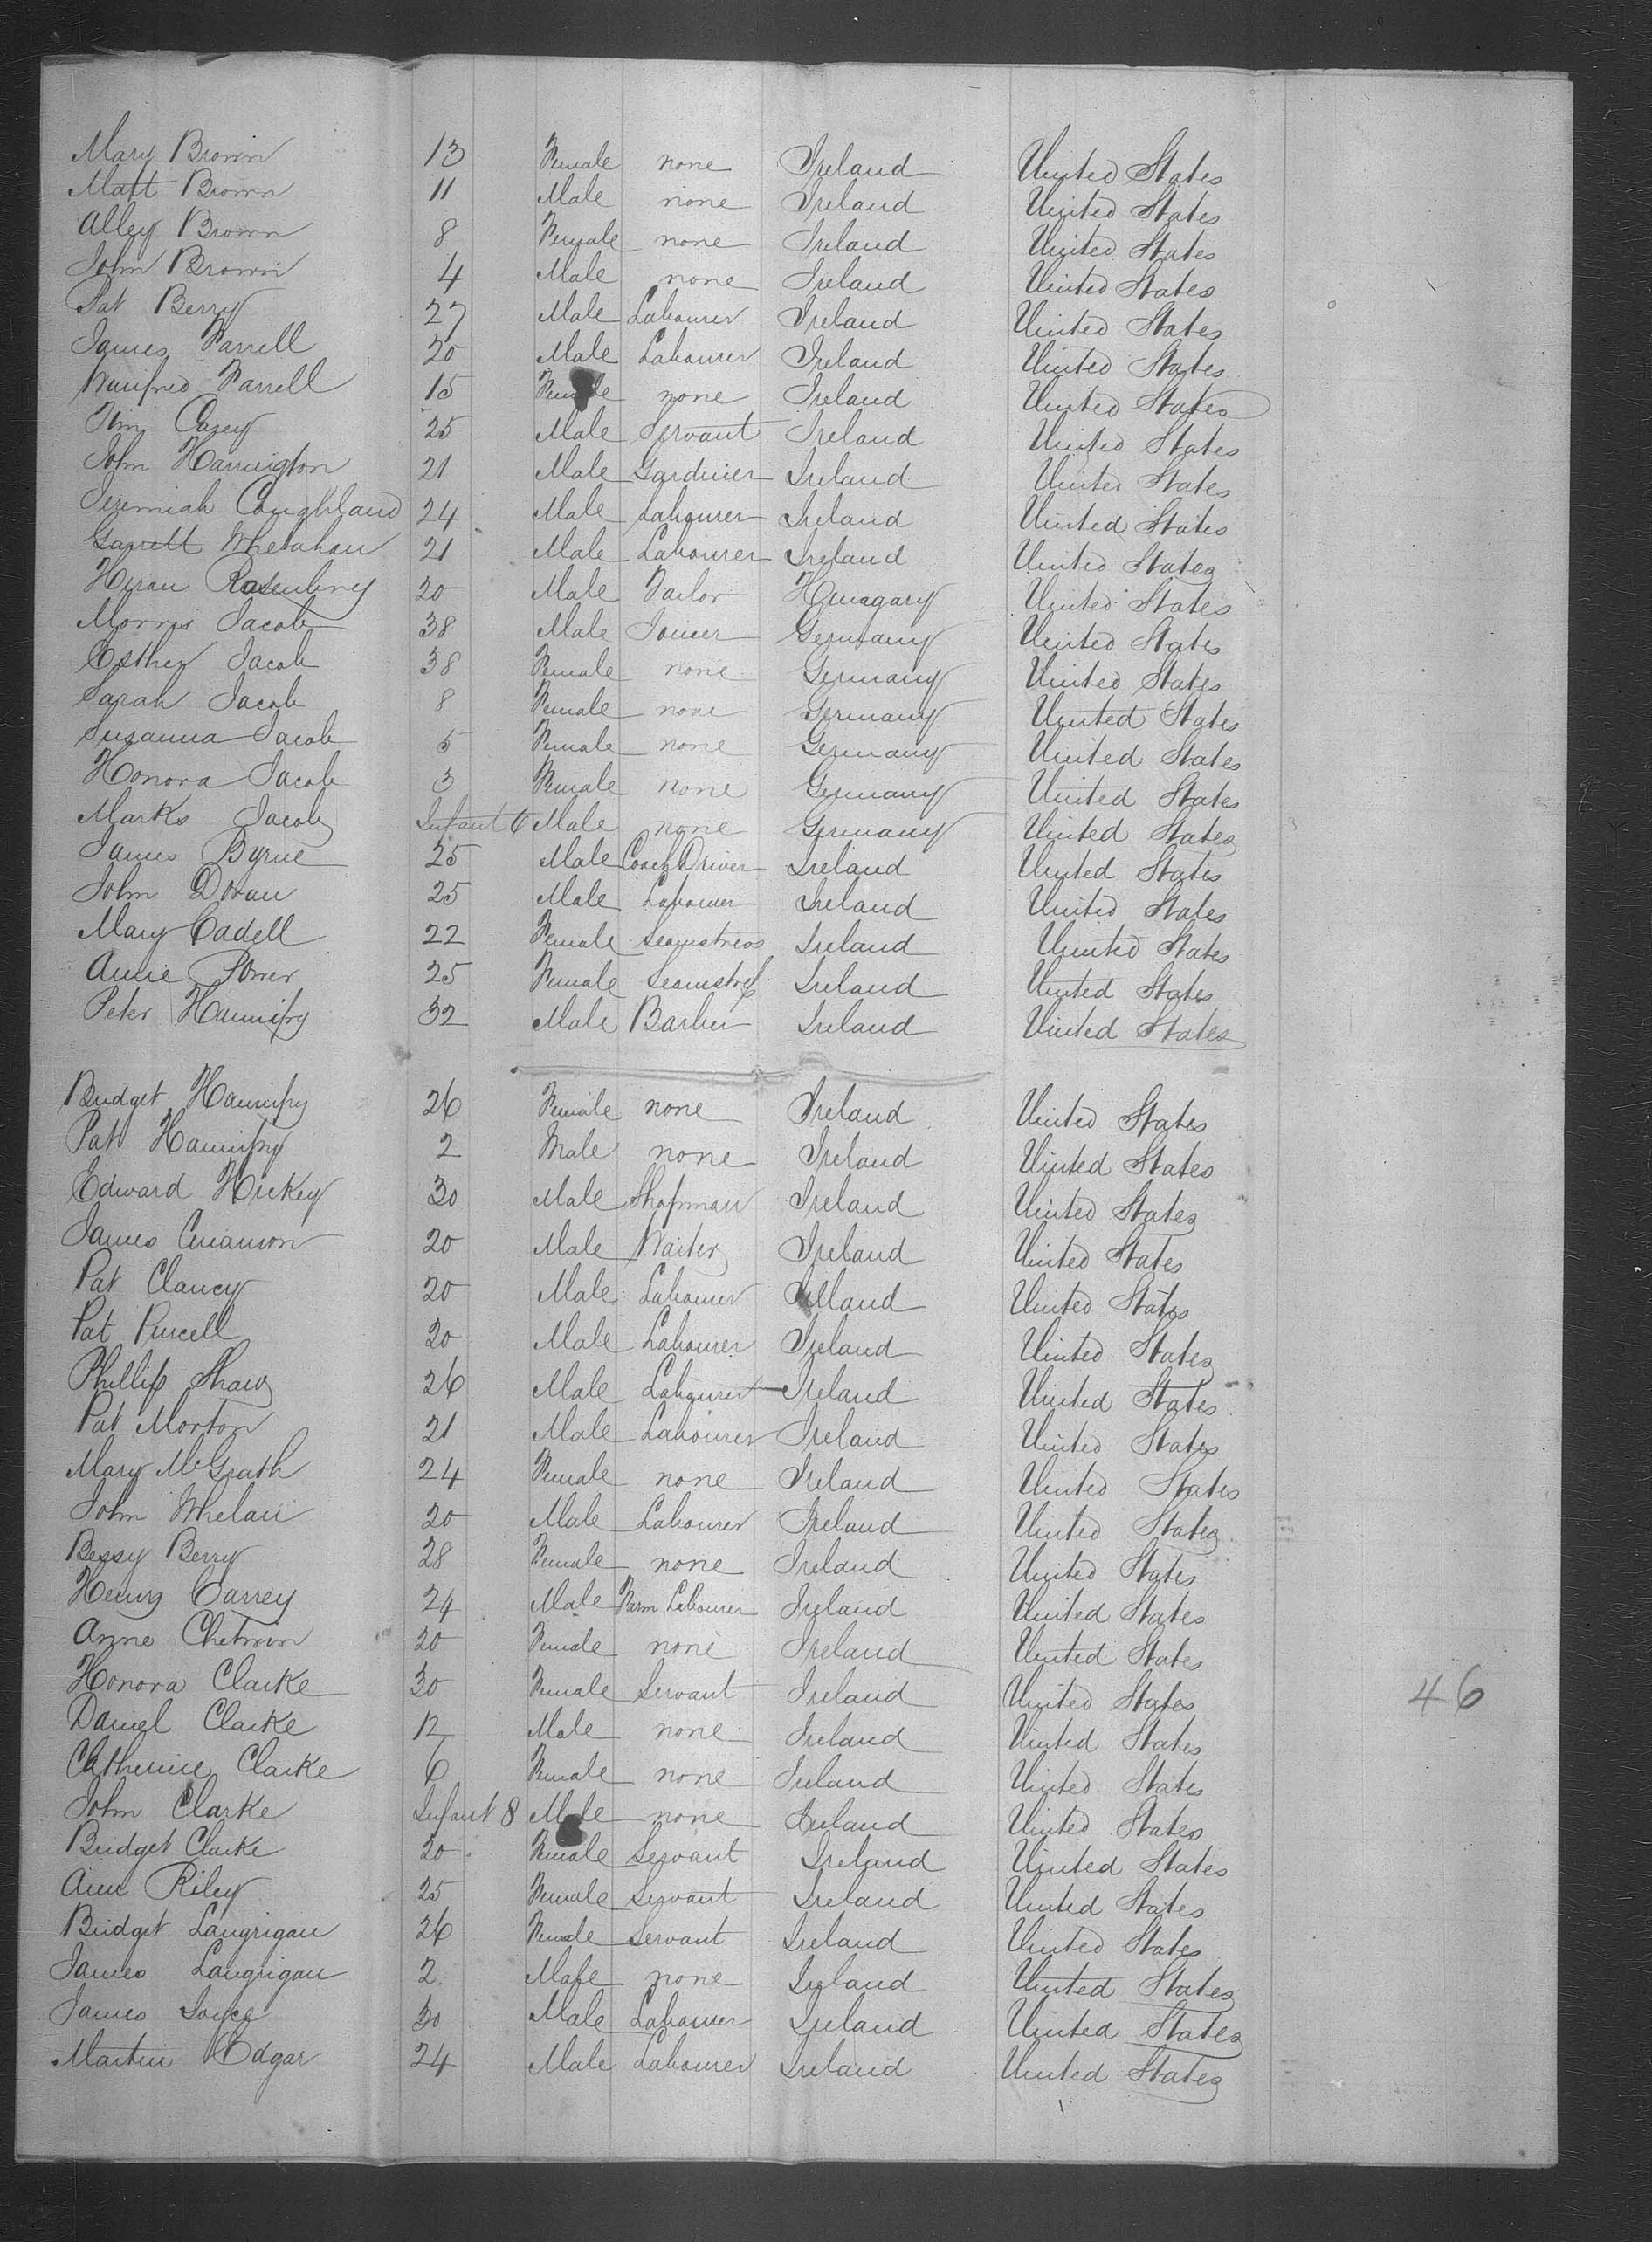 Mary Brown 13 Female none Ireland United States
Matt Brown 11 Male none Ireland United States
Alley Brown 8 Female none Ireland United States
John Brown 4 Male none Ireland United States
Pat Berry 27 Male Labourer Ireland United States
James Farrell 20 Male Labourer Ireland United States
Winifred Farrell 15 Female none Ireland United States
Tim Casey 25 Male Servant Ireland United States
John Harrington 21 Male Gardiner Ireland United States
Jeremiah Coughland 24 Male Labourer Ireland United States
Garrett Whelahan 21 Male Labourer Ireland United States
20 Male Tailor Hungary United States
Morris Jacob 38 Male Joiner Germany United States
Esther Jacob 38 Female none Germany United States
Sarah Jacob 8 Female none Germany United States
Susanna Jacob 5 Female none Germany United States
Honora Jacob 3 Female none Germany United States
Marks Jacob Infant 6 Male none Germany United States
James Byrne 25 Male Coach Driver Ireland United States
John Doran 25 Male Labourer Ireland United States
Mary Cadell 22 Female Seamstress Ireland United States
Annie Power 25 Female Seamstress Ireland United States
Peter Hannify 32 Male Barber Ireland United States
Bridget Hannify 26 Female none Ireland United States
Pat Hannify 2 Male none Ireland United States
Edward Hickey 30 Male Shopman Ireland United States
James 20 Male Waiter Ireland United States
Pat Clancy 20 Male Labourer Ireland United States
Pat Purcell 20 Male Labourer Ireland United States
Phillip Shaw 26 Male Labourer Ireland United States
Pat Morton 21 Male Labourer Ireland United States
Mary McGrath 24 Female none Ireland United States
John Whelan 20 Male Labourer Ireland United States
Bessy Berry 28 Female none Ireland United States
Henry Carrey 24 Male Farm Labourer Ireland United States
Anne Chetwin 20 Female none Ireland United States
Honora Clarke 30 Female Servant Ireland United States 46
Daniel Clarke 12 Male none Ireland United States
Catherine Clarke 6 Female none Ireland United States
John Clarke Infant 8 Male none Ireland United States
Bridget Clarke 20 Female Servant Ireland United States
Ann Riley 25 Female Servant Ireland United States
Bridget Langrigan 26 Female Servant Ireland United States
James Langrigan 2 Male none Ireland United States
James Joyce 30 Male Labourer Ireland United States
Martin Edgar 24 Male Labourer Ireland United States